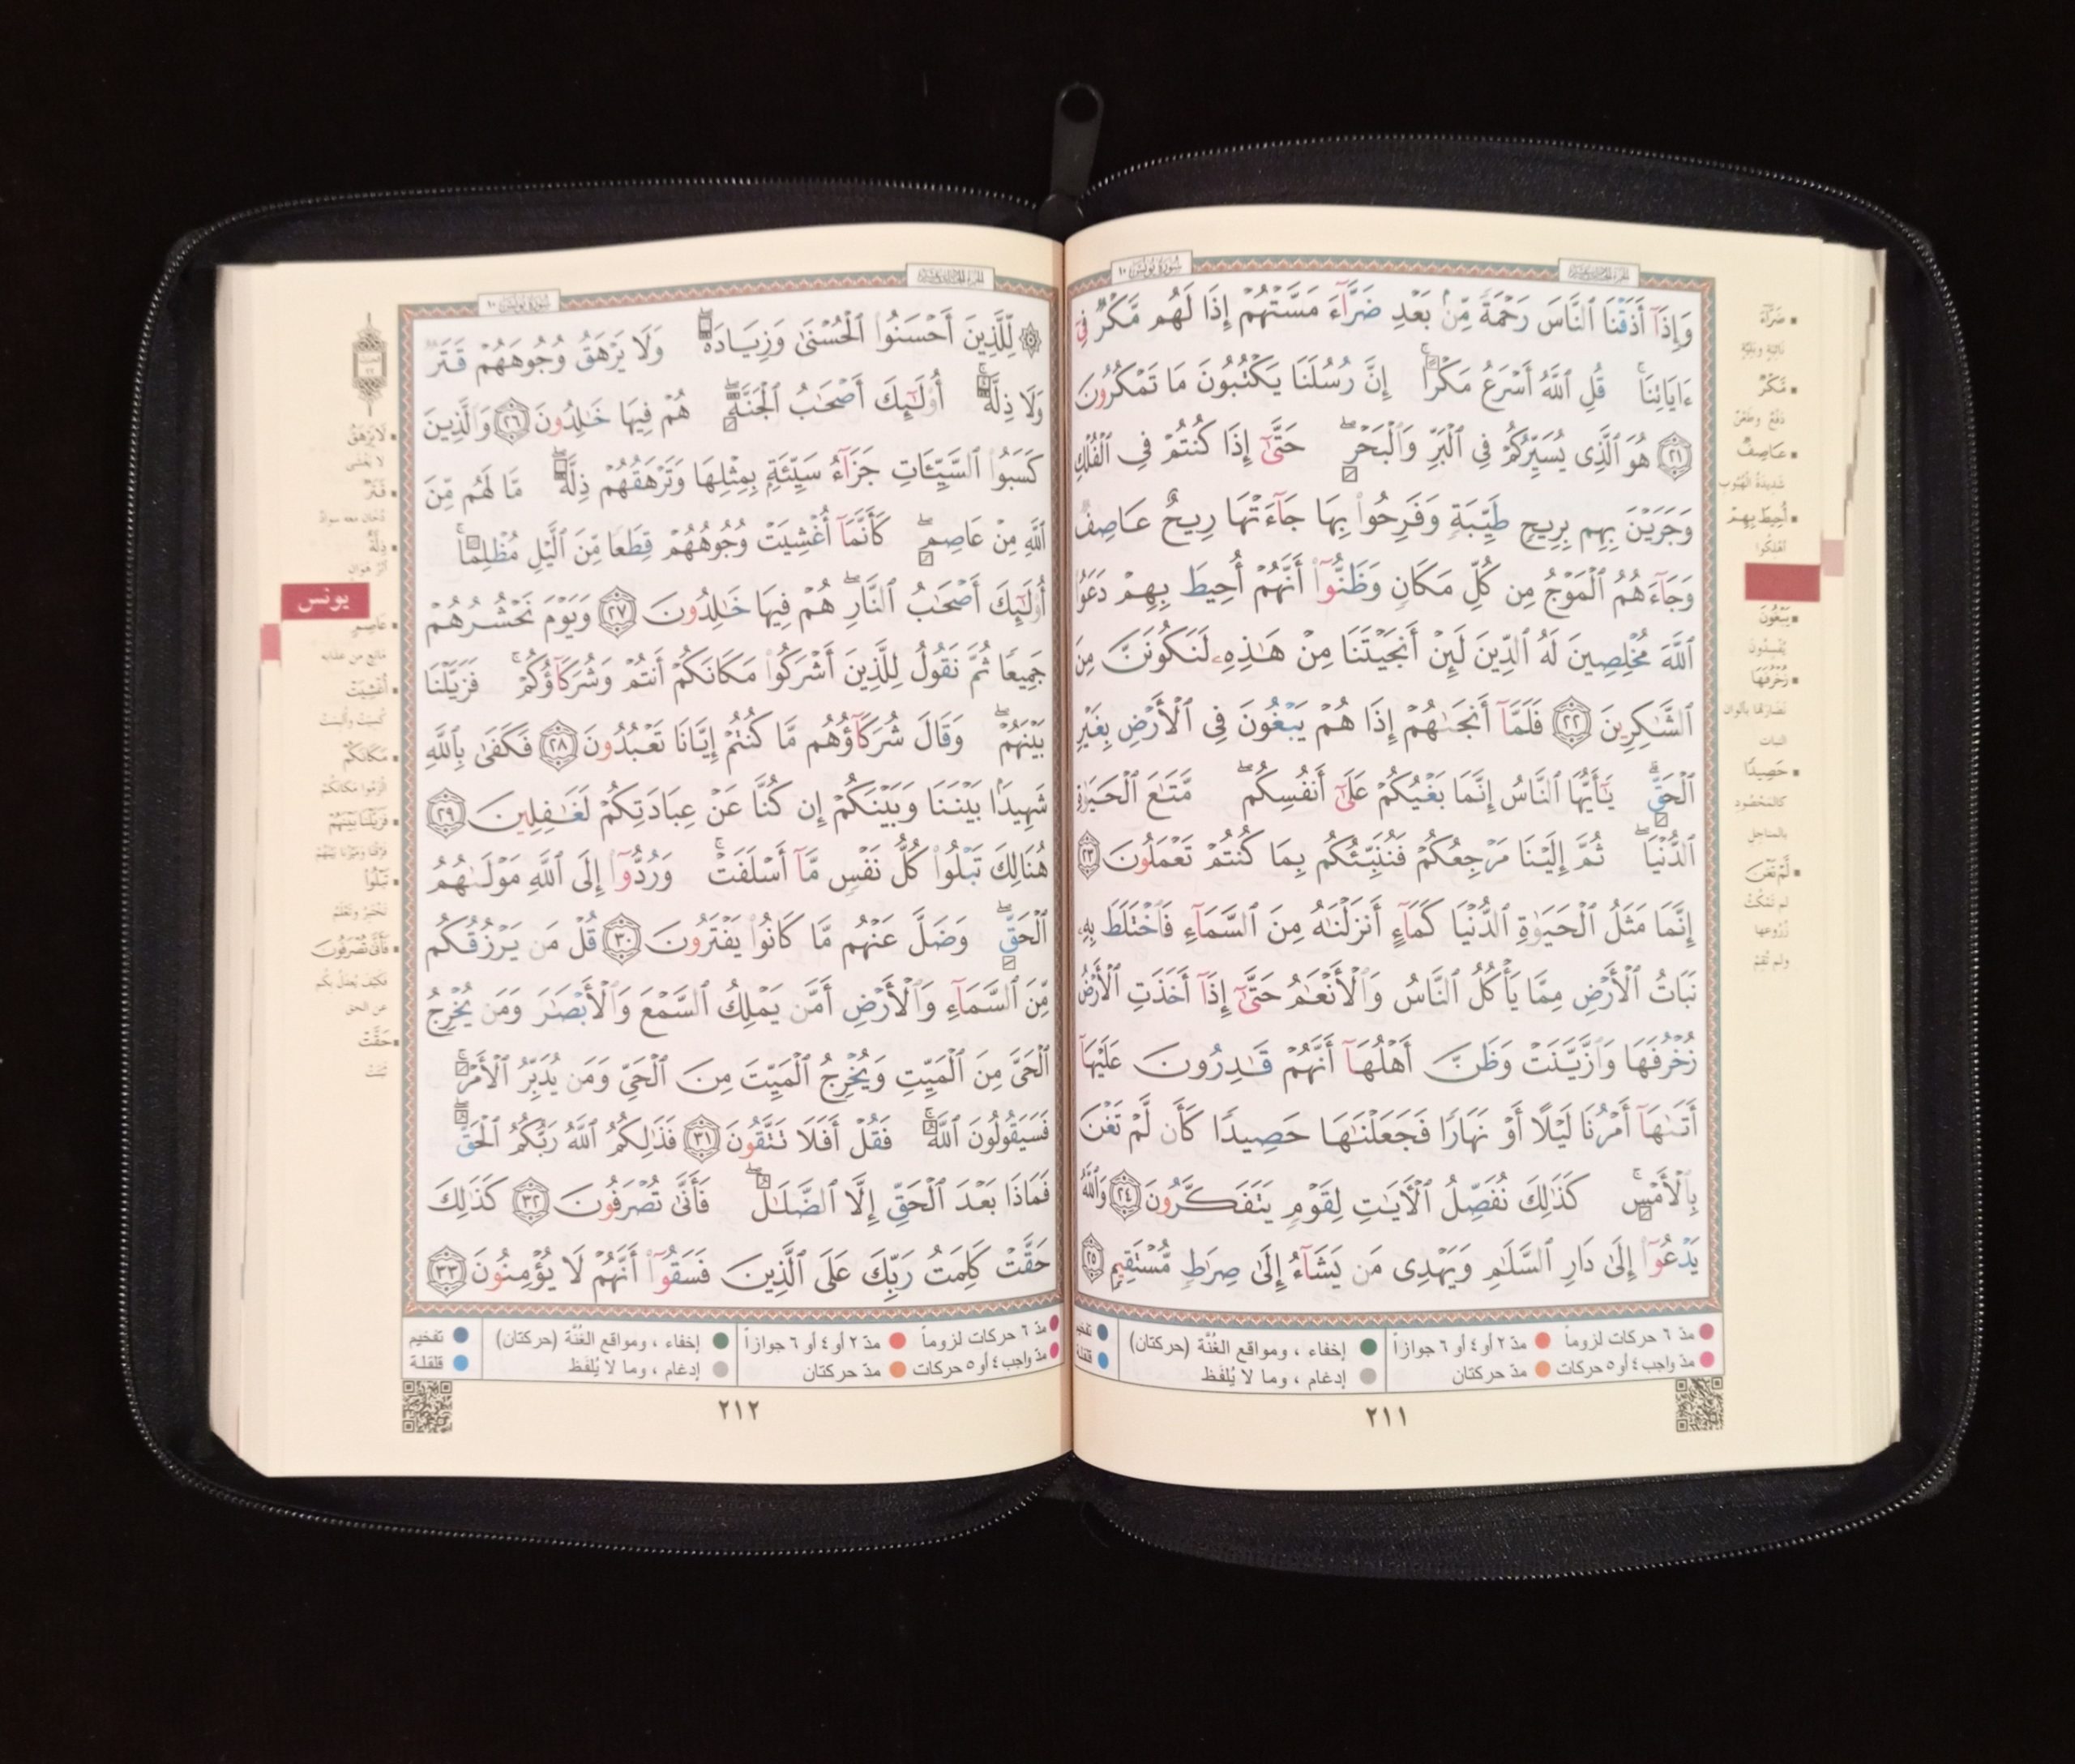 سورة يونس ١٠
الجزء الحادي عشر
وَإِذَآ أَذَقْنَا ٱلنَّاسَ رَحْمَةً مِّنۢ بَعْدِ ضَرَّآءَ مَسَّتْهُمْ إِذَا لَهُم مَّكْرٌ فِىٓ
ءَايَاتِنَا ۚ قُلِ ٱللَّهُ أَسْرَعُ مَكْرًا ۚ إِنَّ رُسُلَنَا يَكْتُبُونَ مَا تَمْكُرُونَ
٢١ هُوَ ٱلَّذِى يُسَيِّرُكُمْ فِى ٱلْبَرِّ وَٱلْبَحْرِ ۖ حَتَّىٰٓ إِذَا كُنتُمْ فِى ٱلْفُلْكِ
وَجَرَيْنَ بِهِم بِرِيحٍ طَيِّبَةٍ وَفَرِحُوا۟ بِهَا جَآءَتْهَا رِيحٌ عَاصِفٌ
وَجَآءَهُمُ ٱلْمَوْجُ مِن كُلِّ مَكَانٍ وَظَنُّوٓا۟ أَنَّهُمْ أُحِيطَ بِهِمْ دَعَوُا۟
ٱللَّهَ مُخْلِصِينَ لَهُ ٱلدِّينَ لَئِنْ أَنجَيْتَنَا مِنْ هَـٰذِهِۦ لَنَكُونَنَّ مِنَ
ٱلشَّـٰكِرِينَ ٢٢ فَلَمَّآ أَنجَىٰهُمْ إِذَا هُمْ يَبْغُونَ فِى ٱلْأَرْضِ بِغَيْرِ
ٱلْحَقِّ ۗ يَـٰٓأَيُّهَا ٱلنَّاسُ إِنَّمَا بَغْيُكُمْ عَلَىٰٓ أَنفُسِكُم ۖ مَّتَـٰعَ ٱلْحَيَوٰةِ
ٱلدُّنْيَا ۖ ثُمَّ إِلَيْنَا مَرْجِعُكُمْ فَنُنَبِّئُكُم بِمَا كُنتُمْ تَعْمَلُونَ ٢٣
إِنَّمَا مَثَلُ ٱلْحَيَوٰةِ ٱلدُّنْيَا كَمَآءٍ أَنزَلْنَـٰهُ مِنَ ٱلسَّمَآءِ فَٱخْتَلَطَ بِهِۦ
نَبَاتُ ٱلْأَرْضِ مِمَّا يَأْكُلُ ٱلنَّاسُ وَٱلْأَنْعَـٰمُ حَتَّىٰٓ إِذَآ أَخَذَتِ ٱلْأَرْضُ
زُخْرُفَهَا وَٱزَّيَّنَتْ وَظَنَّ أَهْلُهَآ أَنَّهُمْ قَـٰدِرُونَ عَلَيْهَآ
أَتَىٰهَآ أَمْرُنَا لَيْلًا أَوْ نَهَارًا فَجَعَلْنَـٰهَا حَصِيدًا كَأَن لَّمْ تَغْنَ
بِٱلْأَمْسِ ۚ كَذَٰلِكَ نُفَصِّلُ ٱلْـَٔايَـٰتِ لِقَوْمٍ يَتَفَكَّرُونَ ٢٤ وَٱللَّهُ
يَدْعُوٓا۟ إِلَىٰ دَارِ ٱلسَّلَـٰمِ وَيَهْدِى مَن يَشَآءُ إِلَىٰ صِرَٰطٍ مُّسْتَقِيمٍ ٢٥
ضَرَّآءَ
مَّكْرٌ
عَاصِفٌ
أُحِيطَ بِهِمْ
أُهْلِكُوا
يَبْغُونَ
يُفْسِدُونَ
زُخْرُفَهَا
النبات
حَصِيدًا
بالمناجل
لَّمْ تَغْنَ
مدّ ٦ حركات لزوماً مدّ ٢ أو ٤ أو ٦ جوازاً إخفاء ، ومواقع الغُنَّة (حركتان) تفخيم
مدّ واجب ٤ أو ٥ حركات مدّ حركتان إدغام ، وما لا يُلفَظ قلقلة
٢١١
الجزء الحادي عشر
سورة يونس ١٠
لِّلَّذِينَ أَحْسَنُوا۟ ٱلْحُسْنَىٰ وَزِيَادَةٌ ۖ وَلَا يَرْهَقُ وُجُوهَهُمْ قَتَرٌ
وَلَا ذِلَّةٌ ۚ أُو۟لَـٰٓئِكَ أَصْحَـٰبُ ٱلْجَنَّةِ ۖ هُمْ فِيهَا خَـٰلِدُونَ ٢٦ وَٱلَّذِينَ
كَسَبُوا۟ ٱلسَّيِّـَٔاتِ جَزَآءُ سَيِّئَةٍۭ بِمِثْلِهَا وَتَرْهَقُهُمْ ذِلَّةٌ ۖ مَّا لَهُم مِّنَ
ٱللَّهِ مِنْ عَاصِمٍ ۖ كَأَنَّمَآ أُغْشِيَتْ وُجُوهُهُمْ قِطَعًا مِّنَ ٱلَّيْلِ مُظْلِمًا ۚ
أُو۟لَـٰٓئِكَ أَصْحَـٰبُ ٱلنَّارِ ۖ هُمْ فِيهَا خَـٰلِدُونَ ٢٧ وَيَوْمَ نَحْشُرُهُمْ
جَمِيعًا ثُمَّ نَقُولُ لِلَّذِينَ أَشْرَكُوا۟ مَكَانَكُمْ أَنتُمْ وَشُرَكَآؤُكُمْ ۚ فَزَيَّلْنَا
بَيْنَهُمْ ۖ وَقَالَ شُرَكَآؤُهُم مَّا كُنتُمْ إِيَّانَا تَعْبُدُونَ ٢٨ فَكَفَىٰ بِٱللَّهِ
شَهِيدًۢا بَيْنَنَا وَبَيْنَكُمْ إِن كُنَّا عَنْ عِبَادَتِكُمْ لَغَـٰفِلِينَ ٢٩
هُنَالِكَ تَبْلُوا۟ كُلُّ نَفْسٍ مَّآ أَسْلَفَتْ ۚ وَرُدُّوٓا۟ إِلَى ٱللَّهِ مَوْلَىٰهُمُ
ٱلْحَقِّ ۖ وَضَلَّ عَنْهُم مَّا كَانُوا۟ يَفْتَرُونَ ٣٠ قُلْ مَن يَرْزُقُكُم
مِّنَ ٱلسَّمَآءِ وَٱلْأَرْضِ أَمَّن يَمْلِكُ ٱلسَّمْعَ وَٱلْأَبْصَـٰرَ وَمَن يُخْرِجُ
ٱلْحَىَّ مِنَ ٱلْمَيِّتِ وَيُخْرِجُ ٱلْمَيِّتَ مِنَ ٱلْحَىِّ وَمَن يُدَبِّرُ ٱلْأَمْرَ ۚ
فَسَيَقُولُونَ ٱللَّهُ ۚ فَقُلْ أَفَلَا تَتَّقُونَ ٣١ فَذَٰلِكُمُ ٱللَّهُ رَبُّكُمُ ٱلْحَقُّ ۖ
فَمَاذَا بَعْدَ ٱلْحَقِّ إِلَّا ٱلضَّلَـٰلُ ۖ فَأَنَّىٰ تُصْرَفُونَ ٣٢ كَذَٰلِكَ
حَقَّتْ كَلِمَتُ رَبِّكَ عَلَى ٱلَّذِينَ فَسَقُوٓا۟ أَنَّهُمْ لَا يُؤْمِنُونَ ٣٣
لَا يَرْهَقُ
لا يَغْشَى
قَتَرٌ
ذِلَّةٌ
يونس
عَاصِمٍ
مانِع من عذابه
أُغْشِيَتْ
كُسِيَتْ وأُلبِسَتْ
مَكَانَكُمْ
الْزَمُوا مَكَانَكُمْ
فَزَيَّلْنَا بَيْنَهُمْ
تَبْلُوا۟
فَأَنَّىٰ تُصْرَفُونَ
عن الحق
حَقَّتْ
مدّ ٦ حركات لزوماً مدّ ٢ أو ٤ أو ٦ جوازاً إخفاء ، ومواقع الغُنَّة (حركتان) تفخيم
مدّ واجب ٤ أو ٥ حركات مدّ حركتان إدغام ، وما لا يُلفَظ قلقلة
٢١٢